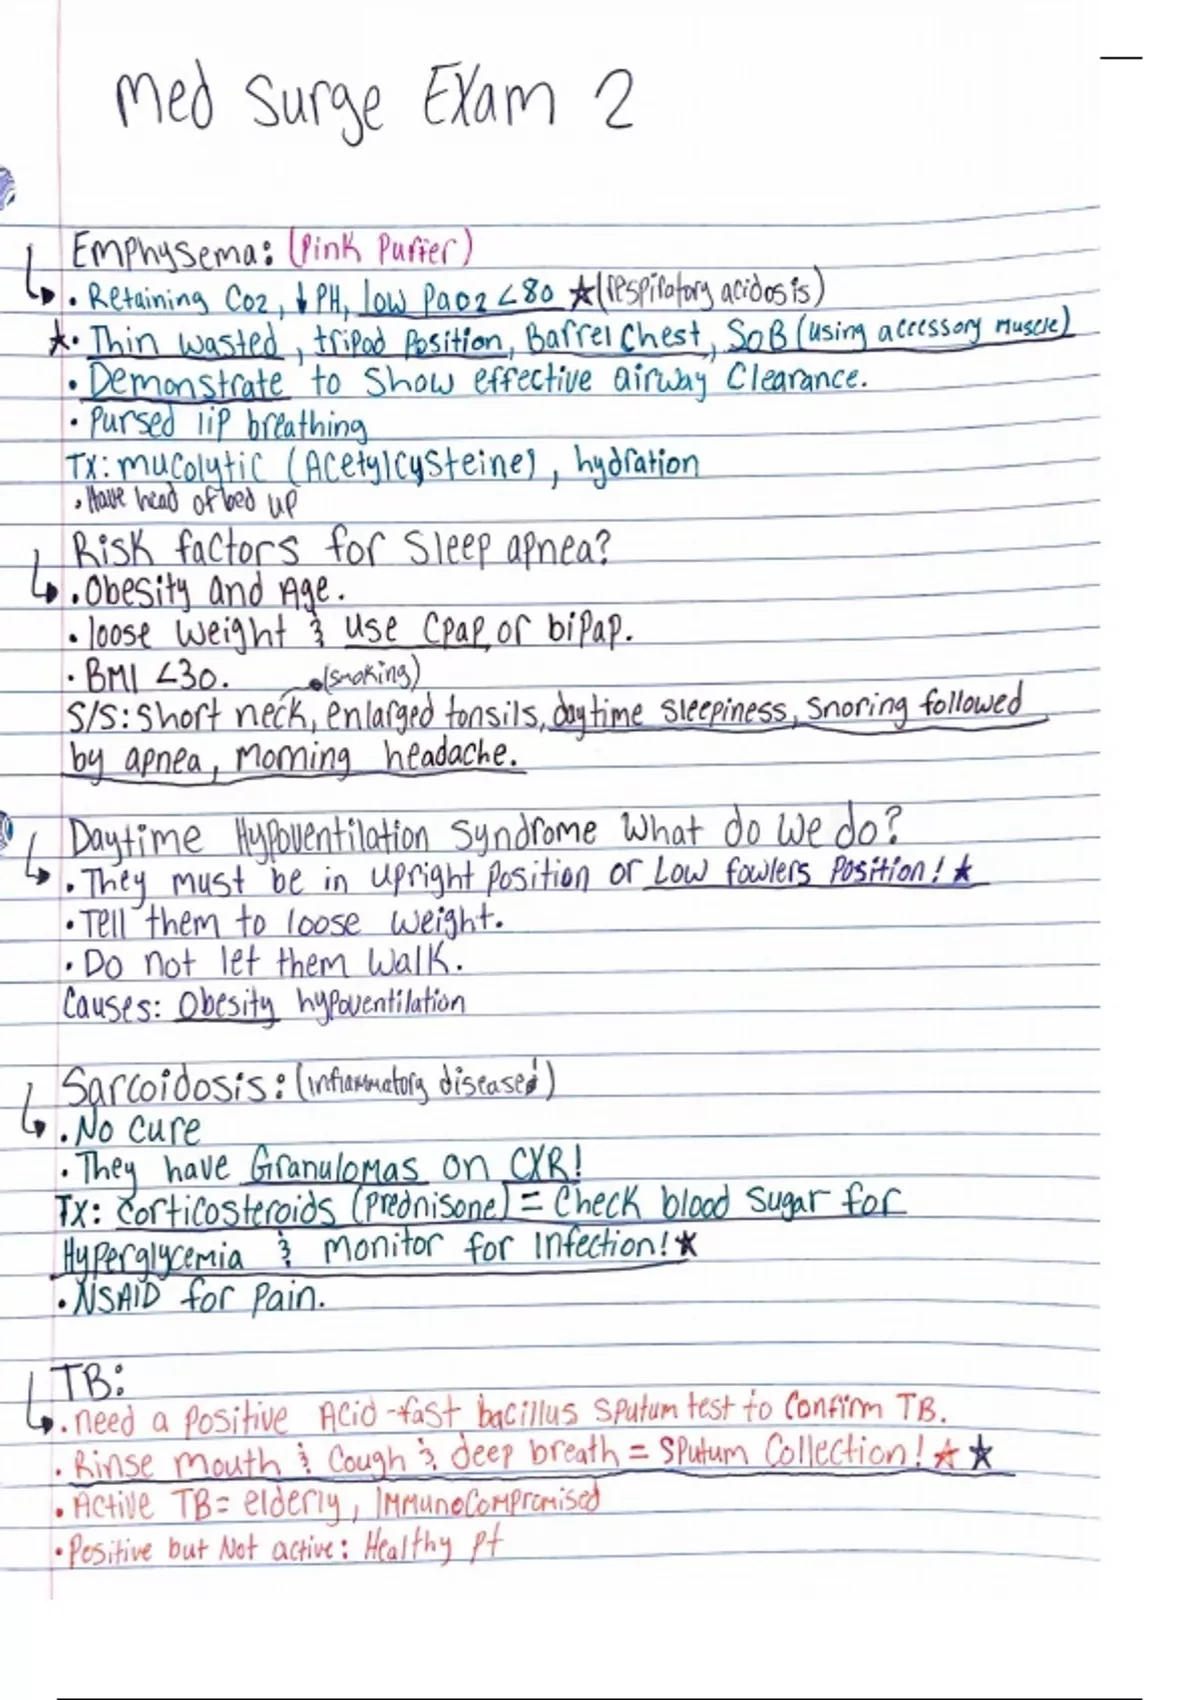 Med Surge Exam 2
Emphysema: (Pink Puffer)
• Retaining CO2, ↓ PH, low PaO2 <80 ★(respiratory acidosis)
★• Thin wasted, tripod Position, Barrel Chest, SOB (using accessory muscle)
• Demonstrate to show effective airway Clearance.
• Pursed lip breathing
Tx: mucolytic (Acetylcysteine), hydration
• Have head of bed up
Risk factors for Sleep apnea?
• Obesity and Age.
• loose weight & use Cpap or bipap.
• BMI <30. •(smoking)
S/S: short neck, enlarged tonsils, daytime sleepiness, snoring followed
by apnea, morning headache.
Daytime Hypoventilation Syndrome What do we do?
• They must be in upright Position or Low fowlers Position! ★
• Tell them to loose weight.
• Do not let them walk.
Causes: Obesity hypoventilation
Sarcoidosis: (inflammatory disease)
• No cure
• They have Granulomas on CXR!
Tx: Corticosteroids (Prednisone) = Check blood sugar for
Hyperglycemia & monitor for infection! ★
• NSAID for pain.
TB:
• need a positive Acid-fast bacillus sputum test to Confirm TB.
• Rinse mouth & Cough & deep breath = Sputum Collection! ★ ★
• Active TB = elderly, Immunocompromised
• Positive but Not active: Healthy pt